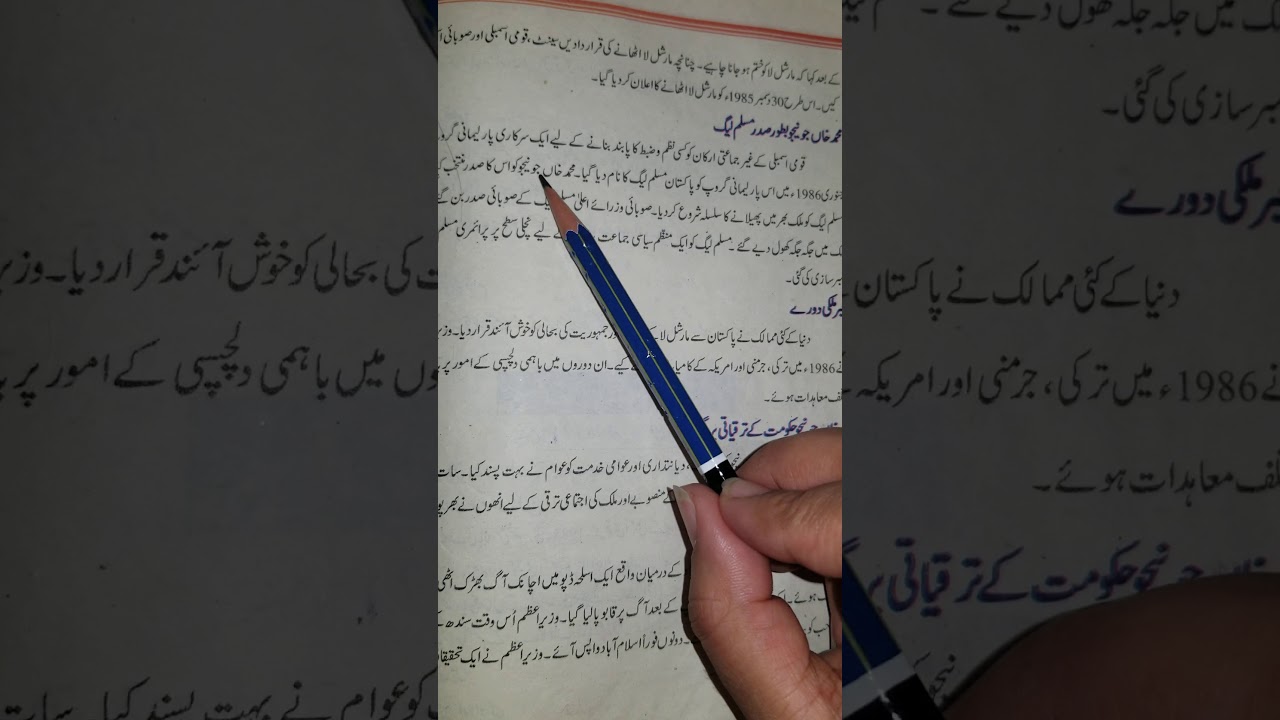 کے بعد کہا کہ مارشل لا کو ختم ہو جانا چاہیے۔ چنانچہ مارشل لا اٹھانے کی قرار دادیں سینٹ، قومی اسمبلی اور صوبائی
کیں۔ اس طرح 30 دسمبر 1985ء کو مارشل لا اٹھانے کا اعلان کر دیا گیا۔
محمد خاں جونیجو بطور صدر مسلم لیگ
قومی اسمبلی کے غیر جماعتی ارکان کو کسی نظم و ضبط کا پابند بنانے کے لیے ایک سرکاری پارلیمانی
جنوری 1986ء میں اس پارلیمانی گروپ کو پاکستان مسلم لیگ کا نام دیا گیا۔ محمد خاں جونیجو کو اس کا صدر منتخب
مسلم لیگ کو ملک بھر میں پھیلانے کا سلسلہ شروع کر دیا۔ صوبائی وزرائے اعلیٰ کے صوبائی صدر بن
میں جگہ جگہ کھول دیے گئے۔ مسلم لیگ کو ایک منظم سیاسی جماعت لیے نچلی سطح پر پرائمری مسلم
سازی کی گئی۔
ملکی دورے
دنیا کے کئی ممالک نے پاکستان سے مارشل لا جمہوریت کی بحالی کو خوش آئند قرار دیا۔
نے 1986ء میں ترکی، جرمنی اور امریکہ کے کیے۔ ان دوروں میں باہمی دلچسپی کے امور پر
معاہدات ہوئے۔
حکومت کے ترقیاتی
دیانتداری اور عوامی خدمت کو عوام نے بہت پسند کیا۔ سات
منصوبے اور ملک کی اجتماعی ترقی کے لیے انھوں نے
کے درمیان واقع ایک اسلحہ ڈپو میں اچانک آگ بھڑک اٹھی
ہوئے۔ کے بعد آگ پر قابو پا لیا گیا۔ وزیراعظم اُس وقت سندھ
دونوں فوراً اسلام آباد واپس آئے۔ وزیراعظم نے ایک